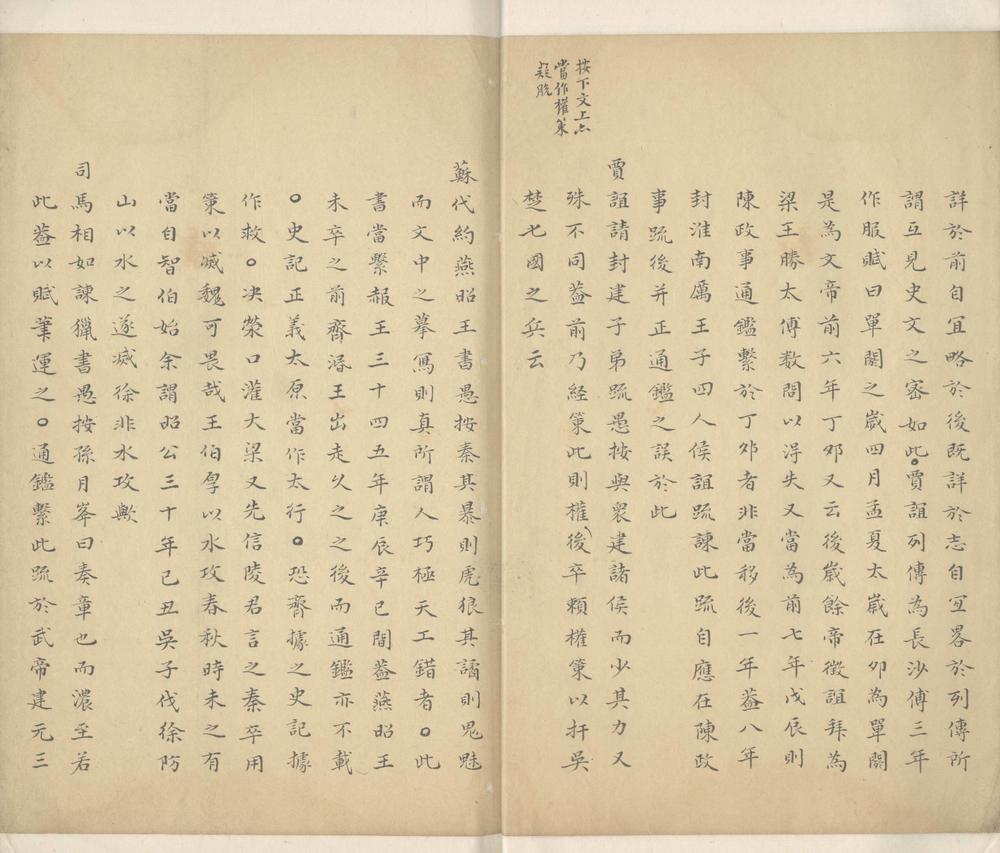 按下文上六
當作權策
疑脫
詳於前自宜略於後既詳於志自宜畧於列傳所
謂互見史文之密如此○賈誼列傳為長沙傅三年
作服賦曰單閼之歲四月孟夏太歲在卯為單閼
是為文帝前六年丁夘又云後歲餘帝徵誼拜為
梁王勝太傅數問以淂失又當為前七年戊辰則
陳政事通鑑繫於丁夘者非當移後一年葢八年
封淮南厲王子四人侯誼疏諫此疏自應在陳政
事疏後并正通鑑之誤於此
賈誼請封建子弟疏愚按與衆建諸侯而少其力又
殊不同葢前乃經策此則權後卒頼權策以扞吳
楚七國之兵云
蘇代約燕昭王書愚按秦其暴則虎狼其譎則鬼魅
而文中之摹寫則真所謂人巧極天工錯者○此
書當繫赧王三十四五年庚辰辛巳間葢燕昭王
未卒之前齊湣王出走久之之後而通鑑亦不載
○史記正義太原當作太行○恐齊據之史記據
作救○决滎口灌大梁又先信陵君言之秦卒用
策以滅魏可畏哉王伯厚以水攻春秋時未之有
當自智伯始余謂昭公三十年己丑吳子伐徐防
山以水之遂滅徐非水攻歟
司馬相如諫獵書愚按孫月峯曰奏章也而濃至若
此葢以賦筆運之○通鑑繫此疏於武帝建元三